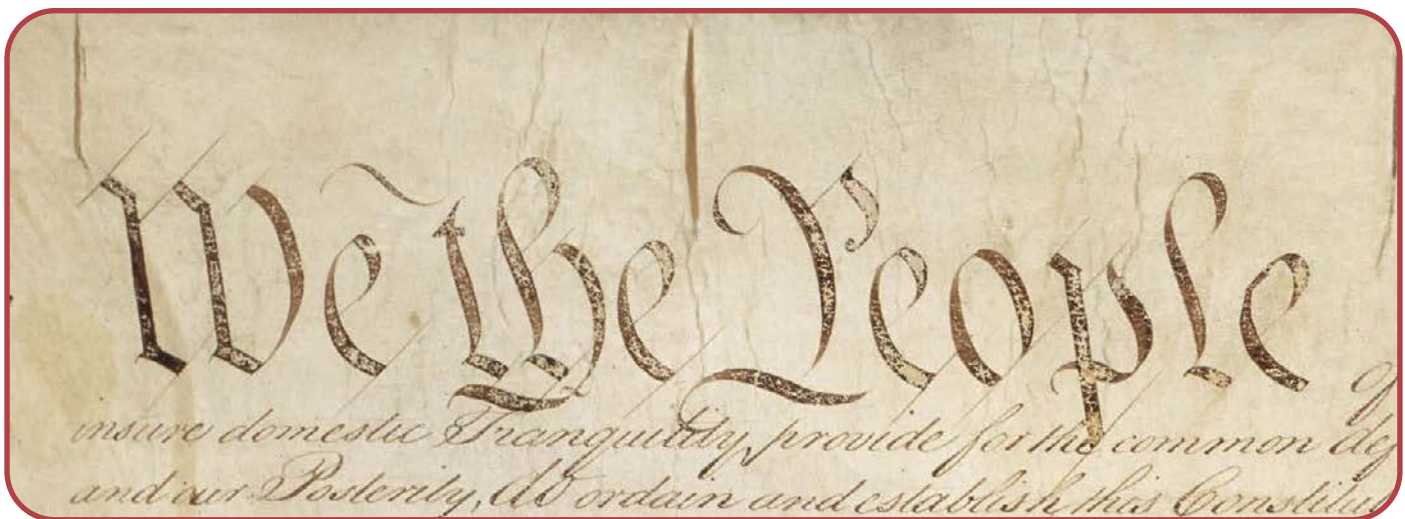 We the People
insure domestic Tranquility, provide for the common def
and our Posterity, do ordain and establish this Constitu